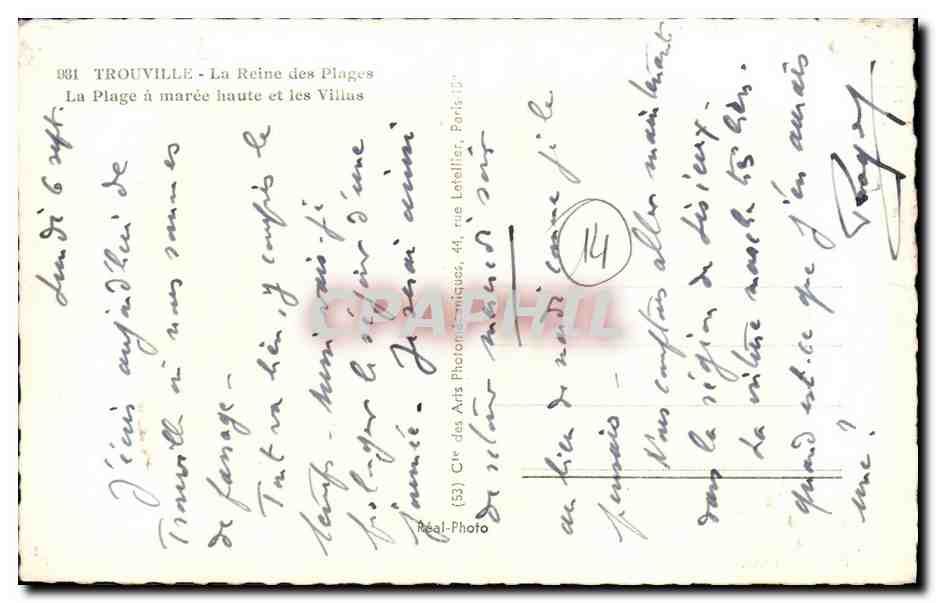 981 TROUVILLE - La Reine des Plages
La Plage à marée haute et les Villas
lundi 6 sept.
J'écris aujourd'hui de
Trouville où nous sommes
de passage -
Tout va bien, y compris le
temps - Aussi vais-je
prolonger le séjour d'une
journée - Je serai ainsi
de retour mercredi soir
au lieu de mardi comme je le
pensais -
Nous comptons aller maintenant
dans la région de Lisieux -
La voiture marche très bien.
quand est-ce que j'en aurais
une ?
Roger
14
(53) Cie des Arts Photomécaniques, 44, rue Letellier, Paris-15e
Réal-Photo
CPAPHIL